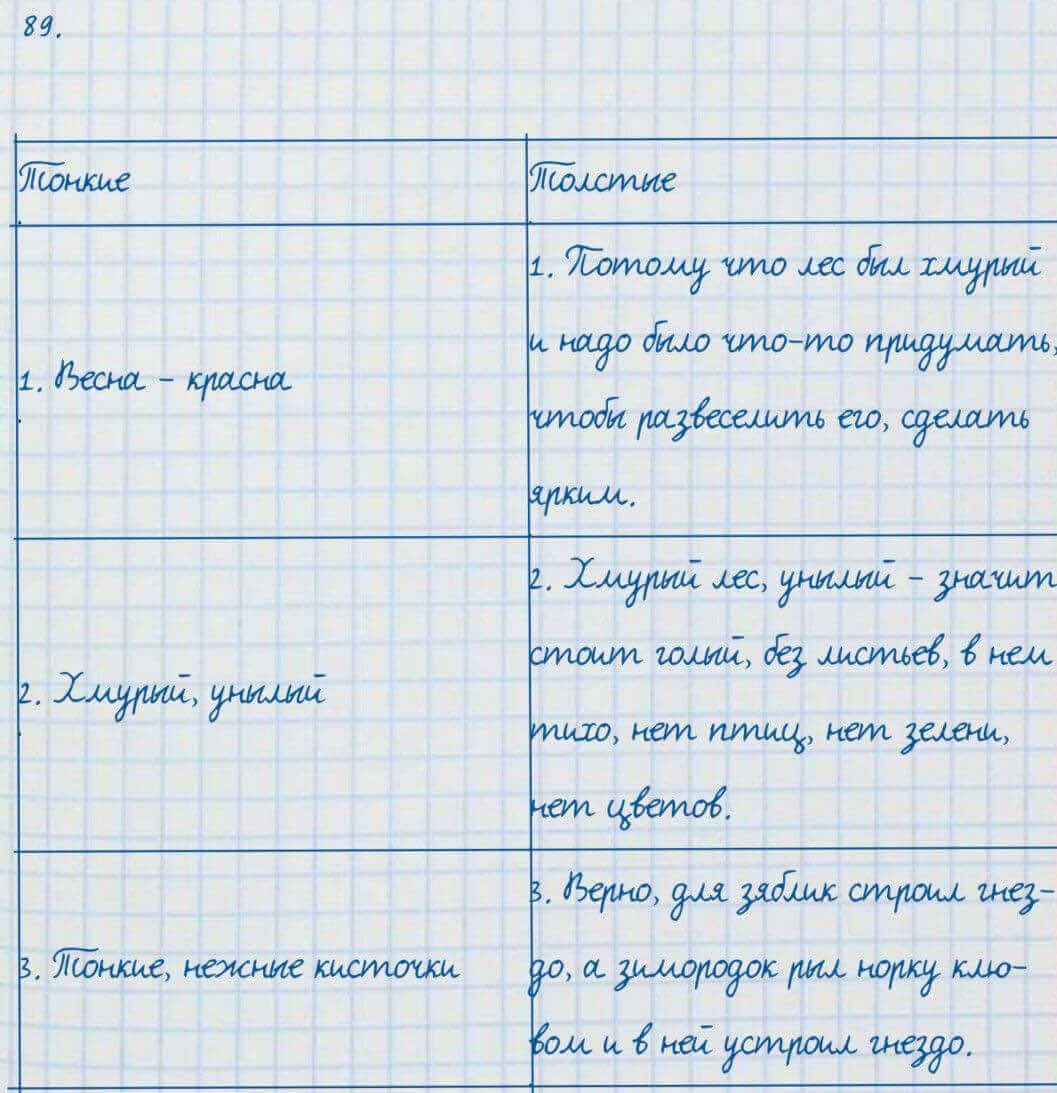 89.
Тонкие
Толстые
1. Весна – красна
1. Потому что лес был хмурый
и надо было что-то придумать,
чтобы развеселить его, сделать
ярким.
2. Хмурый, унылый
2. Хмурый лес, унылый – значит
стоит голый, без листьев, в нем
тихо, нет птиц, нет зелени,
нет цветов.
3. Тонкие, нежные кисточки
3. Верно, для зяблик строил гнез-
до, а зимородок рыл норку клю-
вом и в ней устроил гнездо.